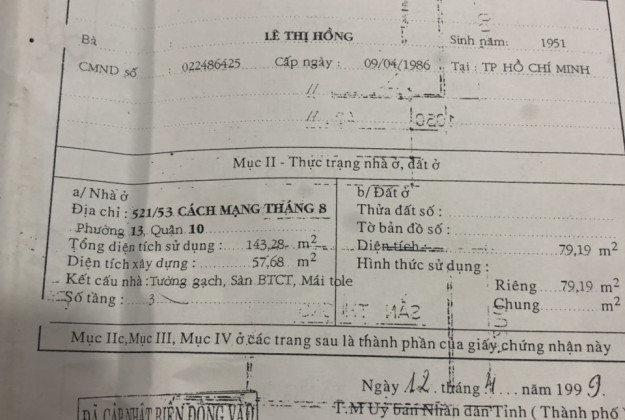 Bà : LÊ THỊ HỒNG Sinh năm: 1951
CMND số : 022486425 Cấp ngày : 09/04/1986 Tại : TP HỒ CHÍ MINH
Mục II - Thực trạng nhà ở, đất ở
a/ Nhà ở
Địa chỉ : 521/53 CÁCH MẠNG THÁNG 8
Phường 13, Quận 10
Tổng diện tích sử dụng : 143,28 m2
Diện tích xây dựng : 57,68 m2
Kết cấu nhà : Tường gạch, Sàn BTCT, Mái tole
Số tầng : 3
b/ Đất ở
Thửa đất số :
Tờ bản đồ số :
Diện tích : 79,19 m2
Hình thức sử dụng :
Riêng 79,19 m2
Chung m2
Mục IIc, Mục III, Mục IV ở các trang sau là thành phần của giấy chứng nhận này
Ngày 12 tháng 4 năm 1999.
ĐÃ CẬP NHẬT BIẾN ĐỘNG VÀO
T.M Uỷ ban Nhân dân Tỉnh ( Thành phố